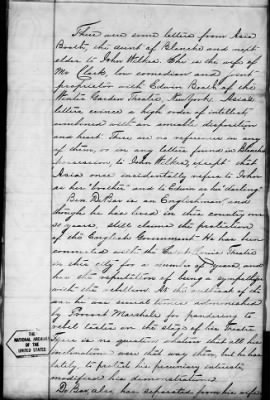 There were some letters from Asia
Booth, the aunt of Blanche and next
elder to John Wilkes. She is the wife of
Mr Clark, low comedian and joint
proprietor with Edwin Booth of the
Winter Garden Theatre, New York. Asia's
letters evinced a high order of intellect,
combined with an amiable disposition
and heart. There are no references in any
of them, or in any letters found in Blanche's
possession, to John Wilkes, except that
Asia once incidentally refers to John
as her "brother" and to Edwin as his "darling"
Ben DeBar is an Englishman and
though he has lived in this country some
30 years, still claims the protection
of the English Government. He has been
connected with the St Louis Theatre
in this city for a number of years, and
has the reputation of being a sympathizer
with the rebellion. At the outbreak of the
war he was several times admonished
by Provost Marshals for pandering to
rebel tastes on the stage of his Theatre.
There is no question whatever that all his
inclinations were that way then, but he has
lately, to protect his pecuniary interests,
modified his demonstrations.
DeBar, also, has separated from his wife,
THE
NATIONAL ARCHIVES
OF THE
UNITED STATES